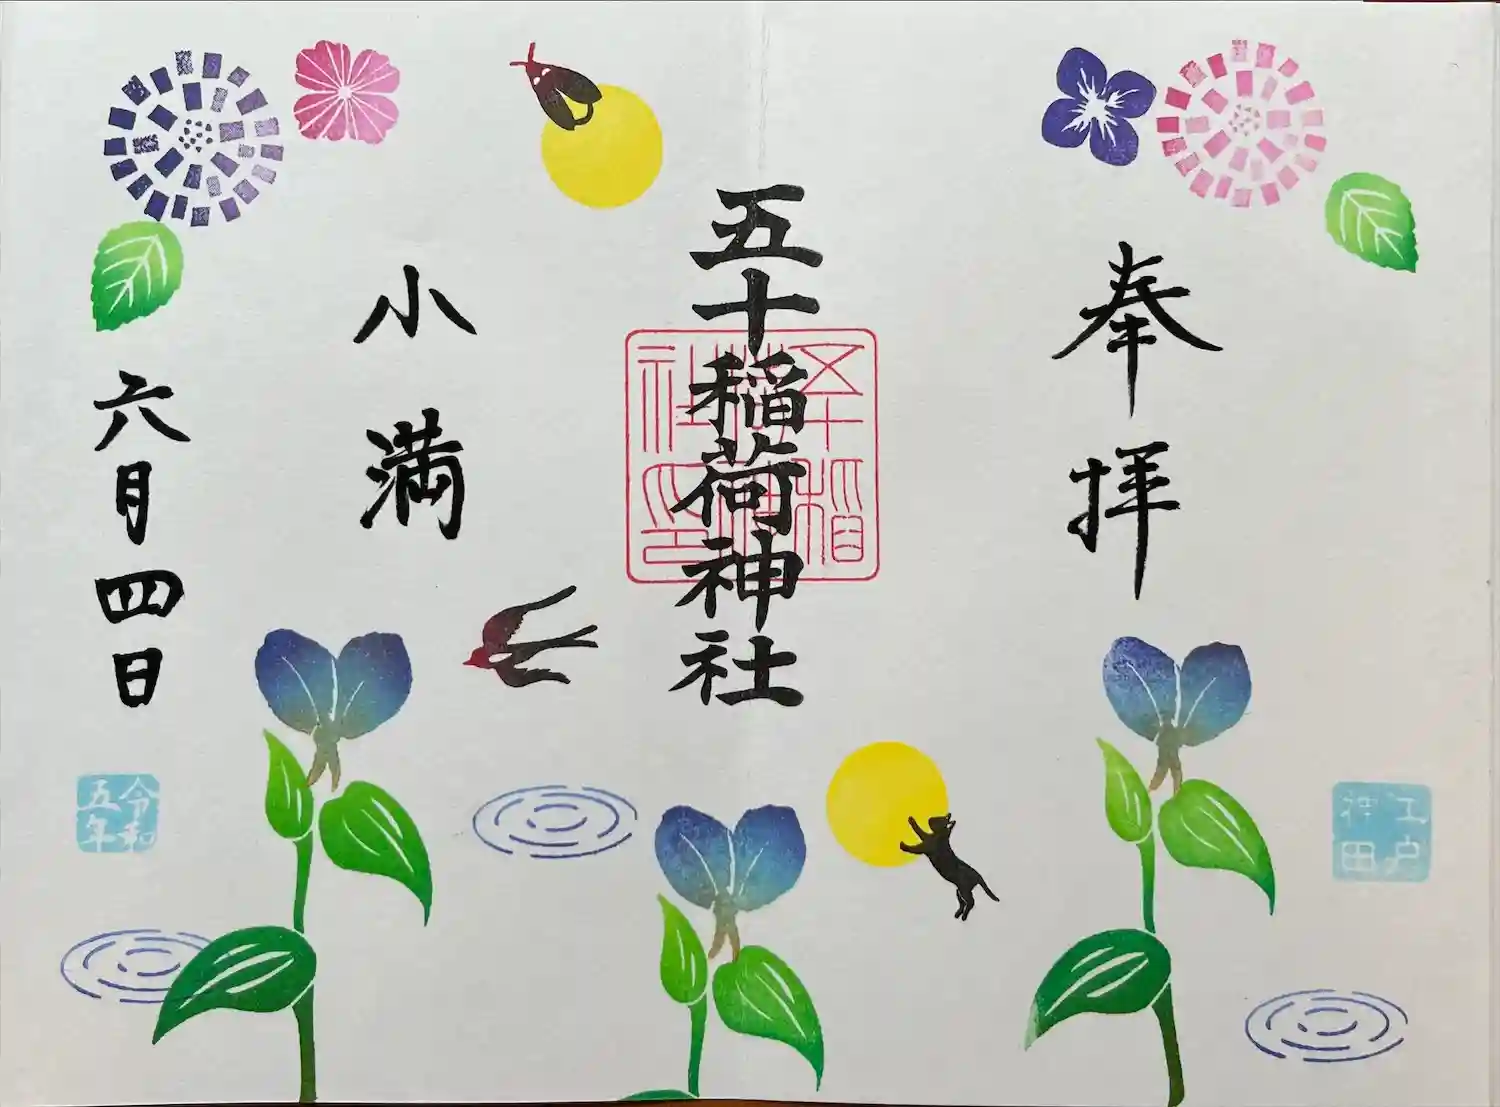 奉拝
江戸
神田
五十稲荷神社
五十稲荷神社印
小満
六月四日
令和
五年